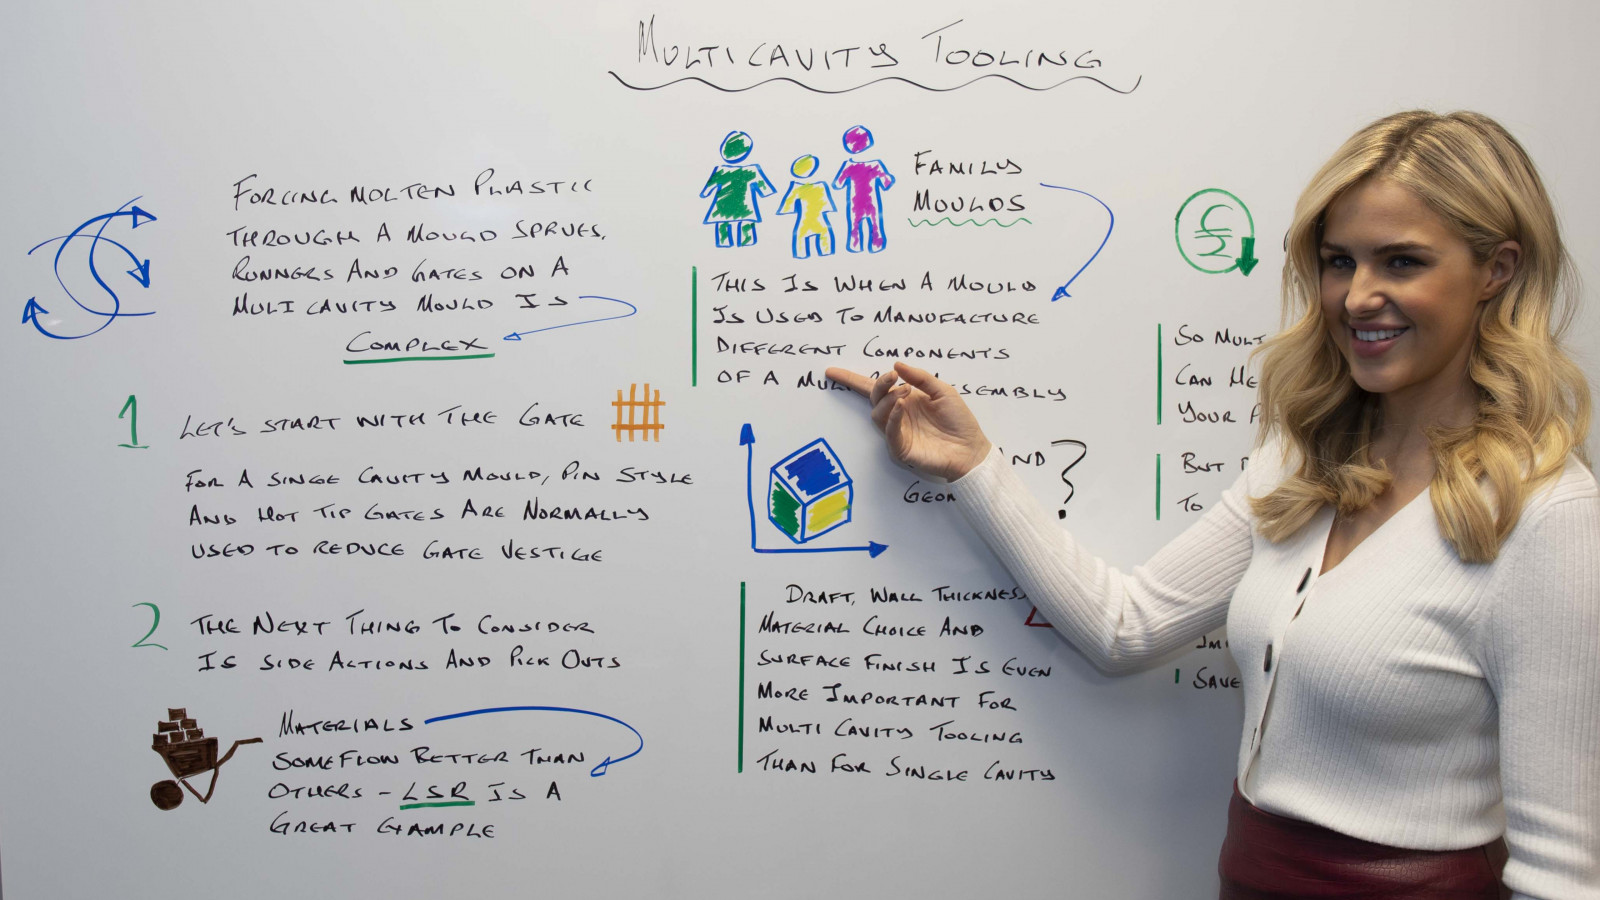 MULTICAVITY TOOLING
FORCING MOLTEN PLASTIC
THROUGH A MOULD SPRUES,
RUNNERS AND GATES ON A
MULTI CAVITY MOULD IS
COMPLEX
1 LET'S START WITH THE GATE
FOR A SINGE CAVITY MOULD, PIN STYLE
AND HOT TIP GATES ARE NORMALLY
USED TO REDUCE GATE VESTIGE
2 THE NEXT THING TO CONSIDER
IS SIDE ACTIONS AND PICK OUTS
MATERIALS
SOME FLOW BETTER THAN
OTHERS - LSR IS A
GREAT EXAMPLE
FAMILY
MOULDS
THIS IS WHEN A MOULD
IS USED TO MANUFACTURE
DIFFERENT COMPONENTS
OF A
AND ?
DRAFT, WALL THICKNESS
MATERIAL CHOICE AND
SURFACE FINISH IS EVEN
MORE IMPORTANT FOR
MULTI CAVITY TOOLING
THAN FOR SINGLE CAVITY
SO MULTI
CAN
YOUR
BUT
TO
SAVE